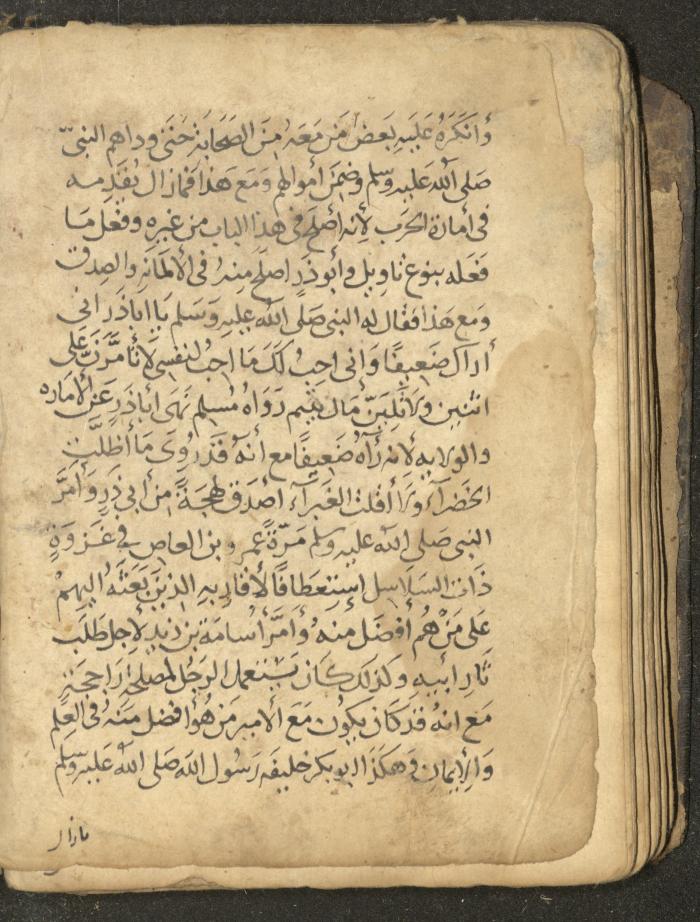 وأنكره عليه بعض من معه من الصحابة حتى وداهم النبي
صلى الله عليه وسلم وضمن أموالهم ومع هذا فمازال يقدمه
فى أمارة الحرب لأنه أصلح فى هذا الباب من غيره وفعل ما
فعله بنوع تاويل وأبو ذر اصلح منه فى الأمانه والصدق
ومع هذا فقال له النبى صلى الله عليه وسلم يا اباذر انى
أراك ضعيفا وانى احب لك ما احب لنفسى لا تأمّرنّ على
اثنين ولا تلينّ مال يتيم رواه مسلم نهى أباذر عن الأماره
والولايه لانه رآه ضعيفا مع أنه قد روى ما أظلت
الخضرآء ولا أقلت الغبرآء أصدق لهجة من أبي ذر وأمّر
النبى صلى الله عليه وسلم مرّة عمرو بن العاص في غزوة
ذات السلاسل استعطافا لأقاربه الذين بعثه اليهم
على من هم أفضل منه وأمّر أسامة بن زيد لأجل طلب
ثار ابيه وكذلك كان يستعمل الرجل لمصلحة راجحة
مع انه قد كان يكون مع الأمير من هو أفضل منه فى العلم
والإيمان وهكذا ابو بكر خليفة رسول الله صلى الله عليه وسلم